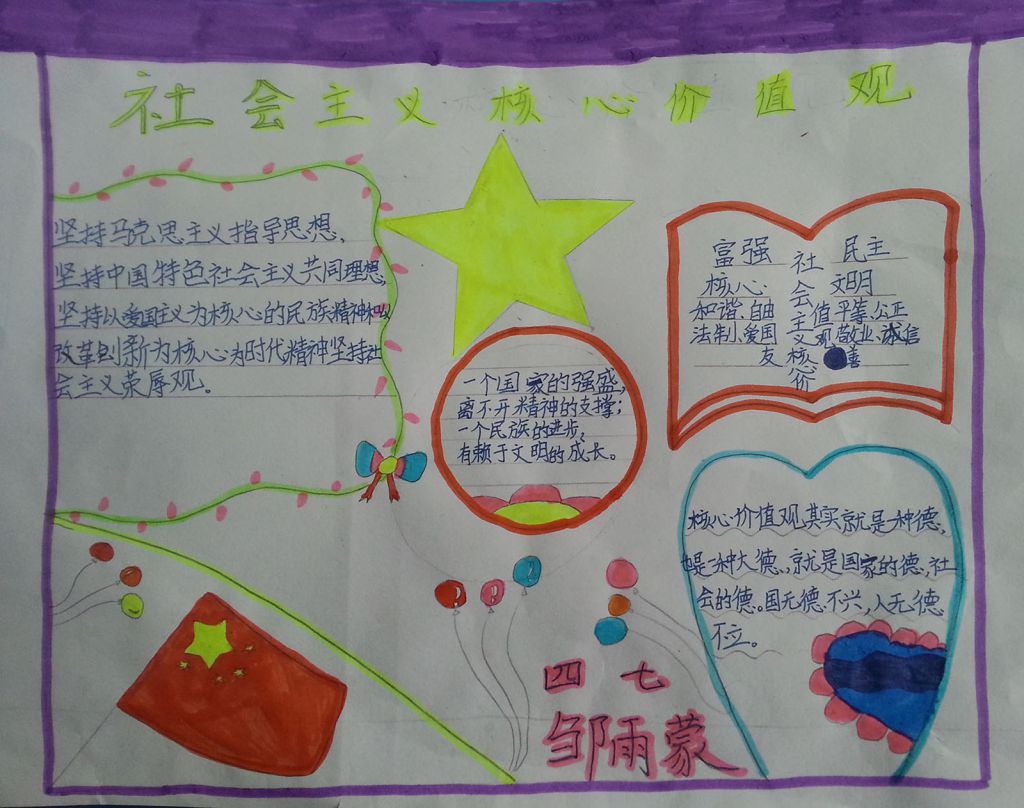 社会主义核心价值观
坚持马克思主义指导思想、
坚持中国特色社会主义共同理想,
坚持以爱国主义为核心的民族精神和以
改革创新为核心为时代精神坚持社
会主义荣辱观。
一个国家的强盛,
离不开精神的支撑;
一个民族的进步,
有赖于文明的成长。
富强 社 民主
核心 会 文明
和谐、自由 主 值 平等、公正
法制、爱国 义 观 敬业、诚信
友 核心 善
价
核心价值观其实就是一种德,
也是一种大德,就是国家的德,社
会的德。国无德不兴,人无德
不立。
四 七
邹雨蒙